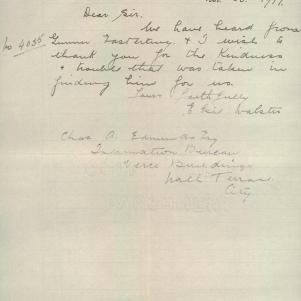 Dear Sir.
We have heard from
No 4055 Gunner & I wish to
thank you for the Kindness
& trouble that was taken in
finding him for us.
Yours Faithfully
E
Chas A. Edmunds Esq
Information Bureau
Verco Buildings
North Terrace
City